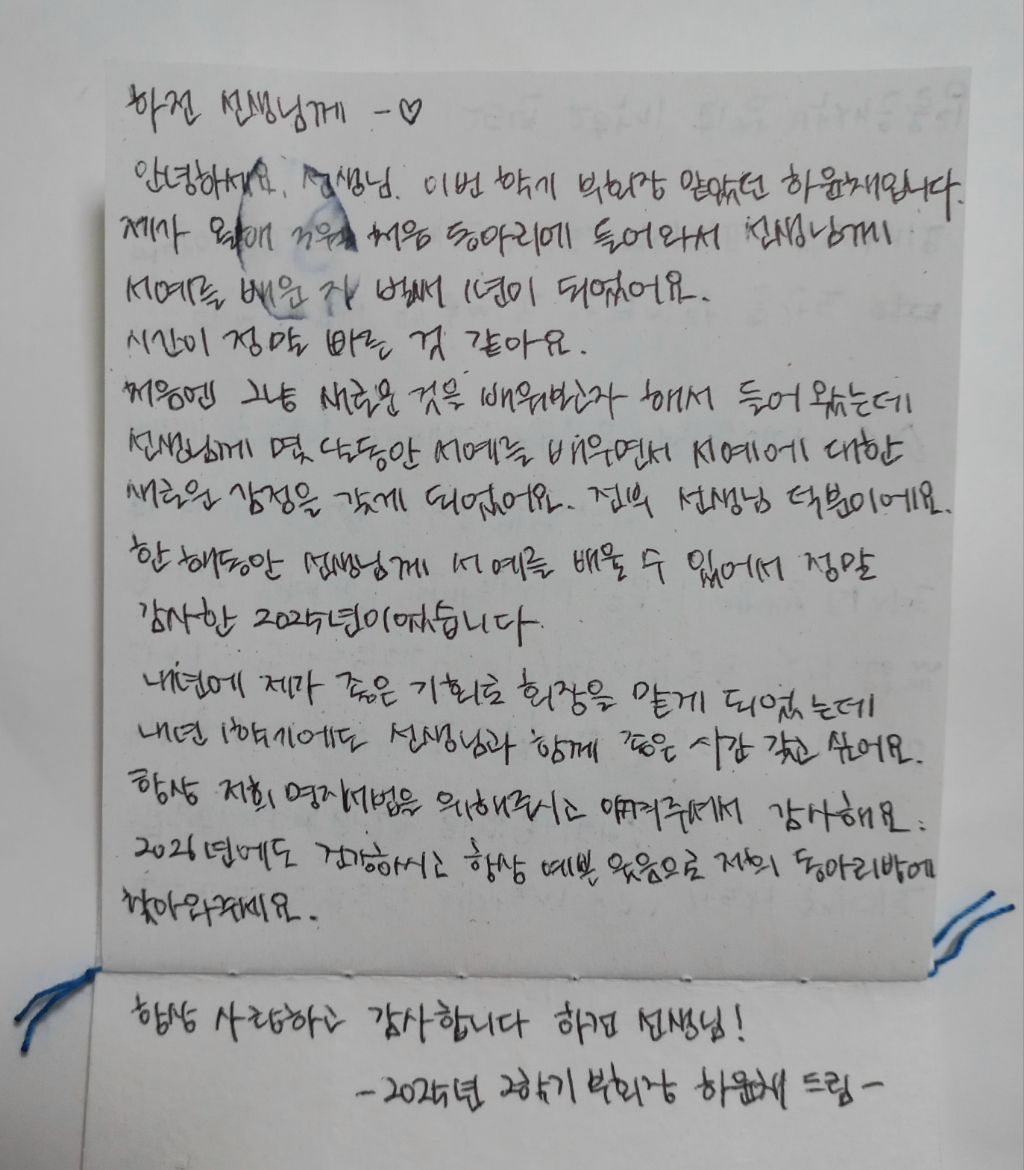 하전 선생님께 -♡
안녕하세요, 선생님. 이번 학기 부회장 맡았던 하윤채입니다.
제가 처음 동아리에 들어와서 선생님께
서예를 배운 지 벌써 1년이 되었어요.
시간이 정말 빠른 것 같아요.
처음엔 그냥 새로운 것을 배워보고자 해서 들어왔는데
선생님께 몇 달동안 서예를 배우면서 서예에 대한
새로운 감정을 갖게 되었어요. 전부 선생님 덕분이에요.
한 해동안 선생님께 서예를 배울 수 있어서 정말
감사한 2025년이었습니다.
내년에 제가 좋은 기회로 회장을 맡게 되었는데
내년 1학기에도 선생님과 함께 좋은 시간 갖고 싶어요.
항상 저희 명지서법을 위해주시고 아껴주셔서 감사해요.
2026년에도 건강하시고 항상 예쁜 웃음으로 저희 동아리방에
찾아와주세요.
항상 사랑하고 감사합니다 하전 선생님!
-2025년 2학기 부회장 하윤채 드림-